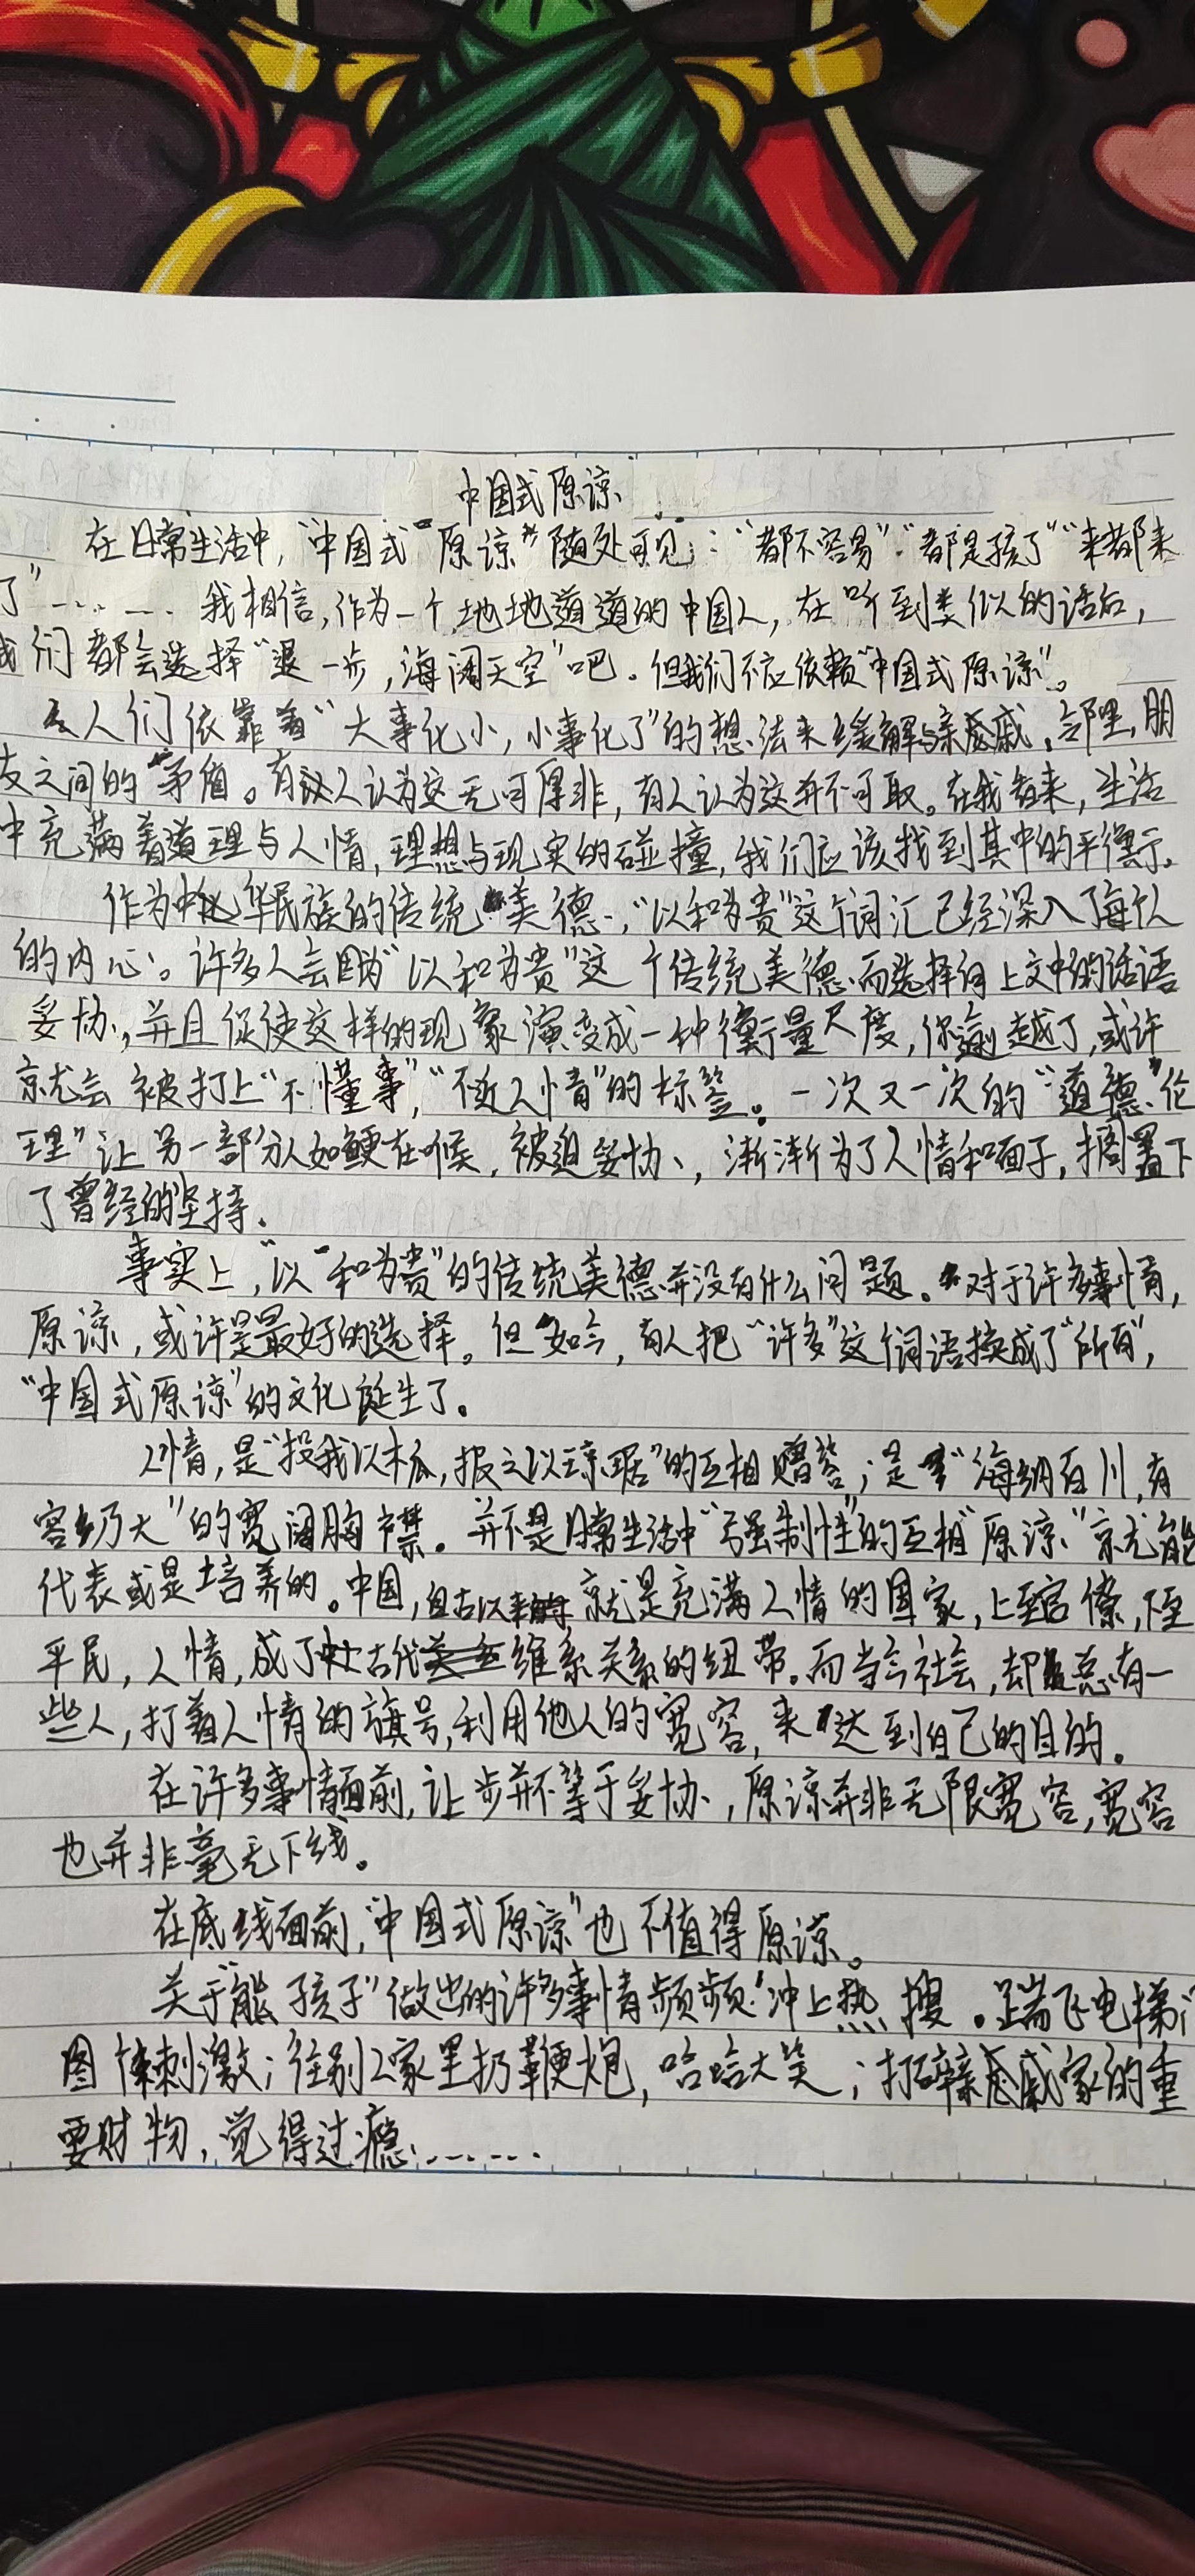 中国式原谅
在日常生活中，“中国式”“原谅”随处可见：“都不容易”“都是孩子”“来都来
了”……我相信，作为一个地地道道的中国人，在听到类似的话后，
我们都会选择“退一步，海阔天空”吧。但我们不应依赖“中国式原谅”。
人们依靠着“大事化小，小事化了”的想法来缓解与亲戚，邻里，朋
友之间的矛盾。有人认为这无可厚非，有人认为这并不可取。在我看来，生活
中充满着道理与人情，理想与现实的碰撞，我们应该找到其中的平衡。
作为中华民族的传统美德，“以和为贵”这个词汇已经深入了每个人
的内心。许多人会因为“以和为贵”这个传统美德而选择向上文中的话语
妥协，并且促使这样的现象演变成一种衡量尺度，你逾越了，或许
就会被打上“不懂事”，“不近人情”的标签。一次又一次的“道德伦
理”让另一部分人如鲠在喉，被迫妥协，渐渐为了人情和面子，搁置下
了曾经的坚持。
事实上，“以和为贵”的传统美德并没有什么问题。对于许多事情，
原谅，或许是最好的选择。但如今，有人把“许多”这个词语换成了“所有”，
“中国式原谅”的文化诞生了。
人情，是“投我以木瓜，报之以琼琚”的互相赠答；是“海纳百川，有
容乃大”的宽阔胸襟。并不是日常生活中“强制性”的互相“原谅”就能
代表或是培养的。中国，自古以来就是充满人情的国家，上至官僚，下至
平民，人情，成了古代维系关系的纽带。而当今社会，却总有一
些人，打着人情的旗号，利用他人的宽容，来达到自己的目的。
在许多事情面前，让步并不等于妥协，原谅并非无限宽容，宽容
也并非毫无下线。
在底线面前，“中国式原谅”也不值得原谅。
关于“熊孩子”做出的许多事情频频冲上热搜。踹飞电梯门
图体刺激；往别人家里扔鞭炮，哈哈大笑；打碎亲戚家的重
要财物，觉得过瘾……